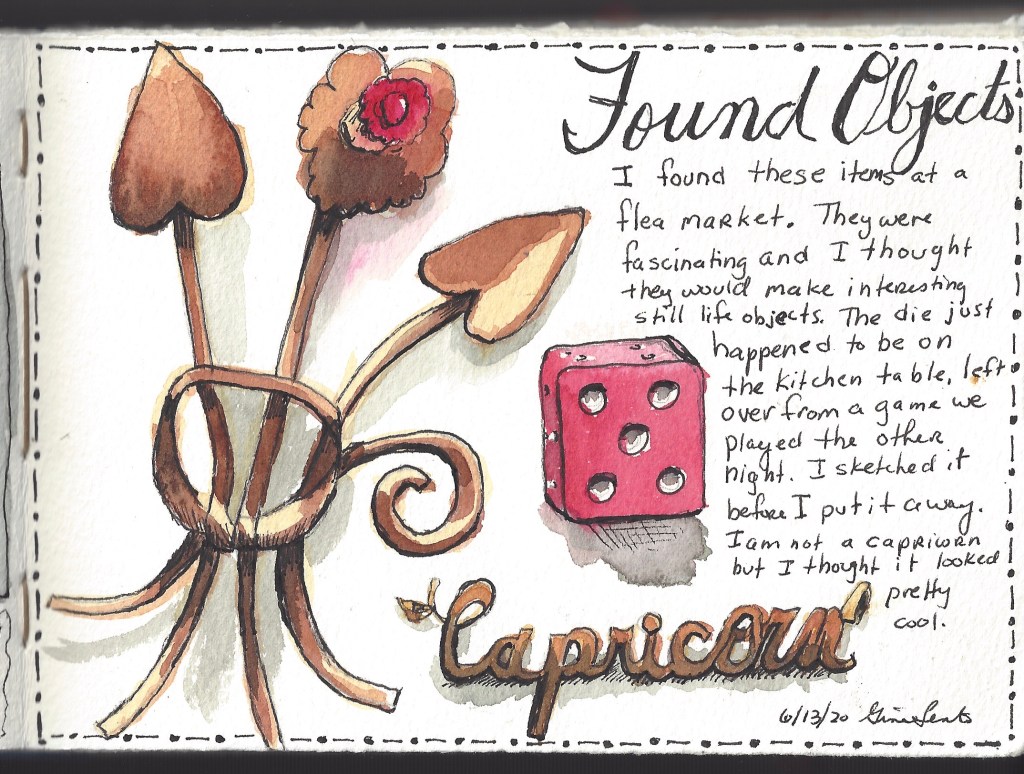 Found Objects
I found these items at a
flea market. They were
fascinating and I thought
they would make interesting
still life objects. The die just
happened to be on
the kitchen table, left
over from a game we
played the other
night. I sketched it
before I put it away.
I am not a capricorn
but I thought it looked
pretty
cool.
Capricorn
6/13/20